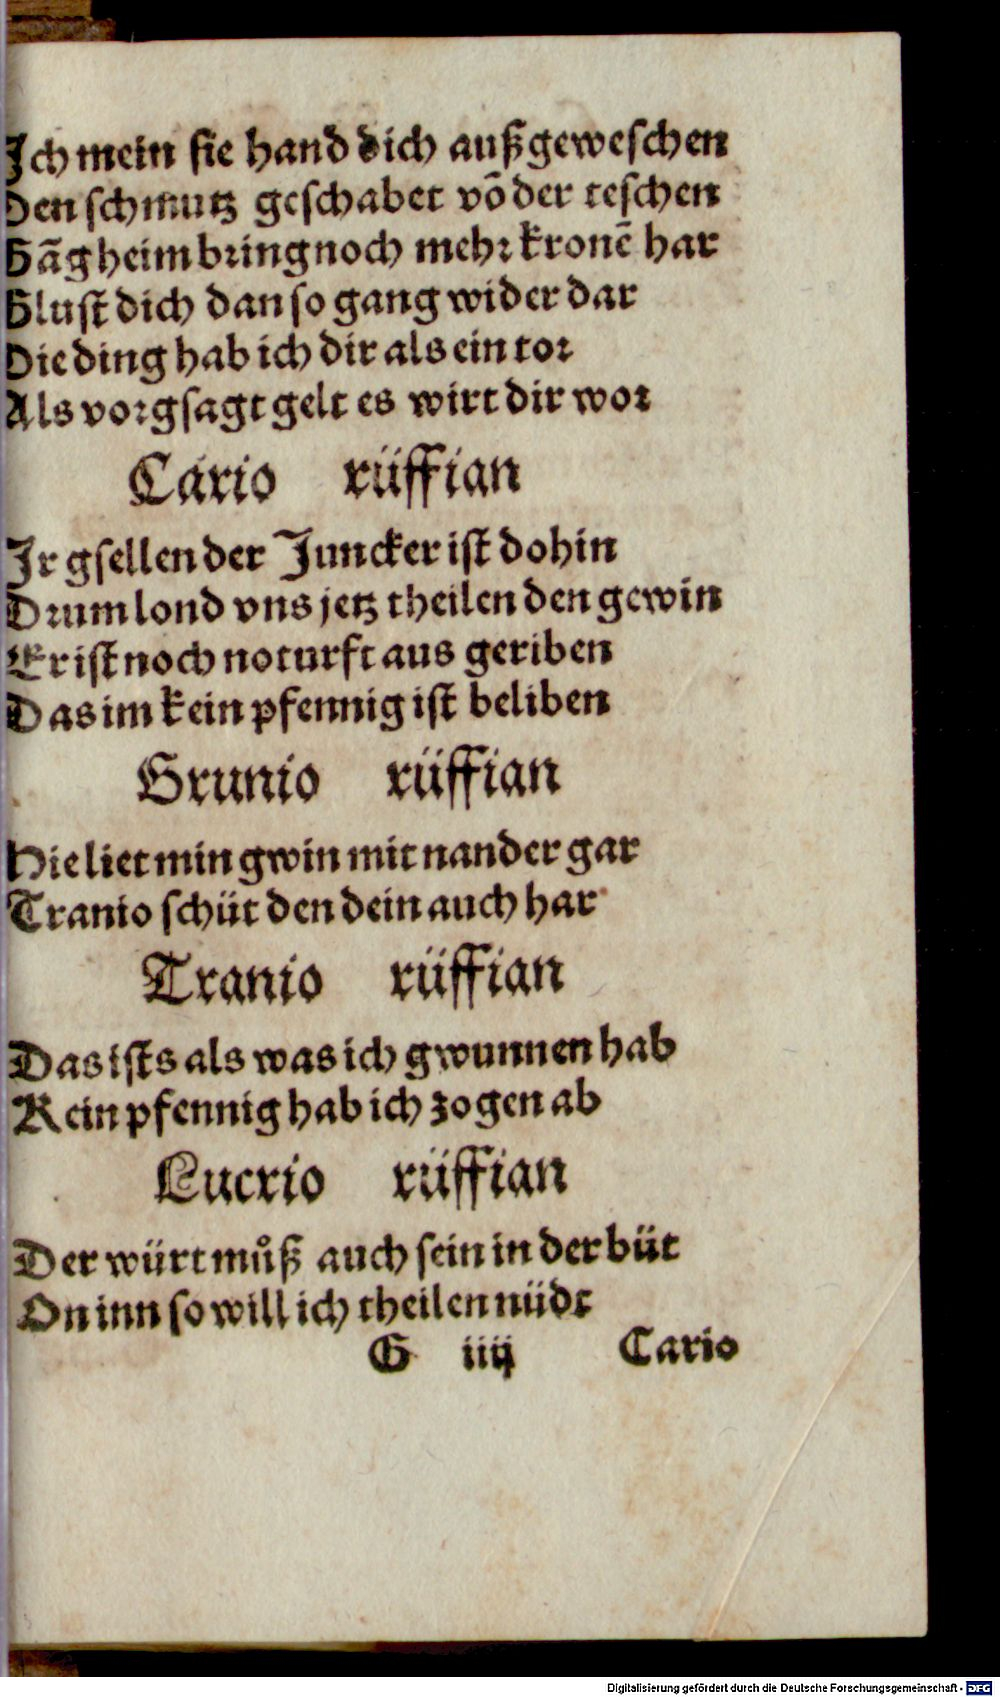 Ich mein sie hand dich außgeweschen
Den schmutz geschabet võ der teschen
Gãg heim bring noch mehr kronẽ har
Glust dich dan so gang wider dar
Die ding hab ich dir als ein tor
Als vorgsagt gelt es wirt dir wor
Cario rüffian
Ir gsellen der Juncker ist dohin
Drum lond vns jetz theilen den gewin
Er ist noch noturft aus geriben
Das im kein pfennig ist beliben
Grunio rüffian
Hie liet min gwin mit nander gar
Tranio schüt den dein auch har
Tranio rüffian
Das ists als was ich gwunnen hab
Kein pfennig hab ich zogen ab
Lucrio rüffian
Der würt můß auch sein in der büt
On inn so will ich theilen nüdt
G iiij Cario
Digitalisierung gefördert durch die Deutsche Forschungsgemeinschaft - DFG